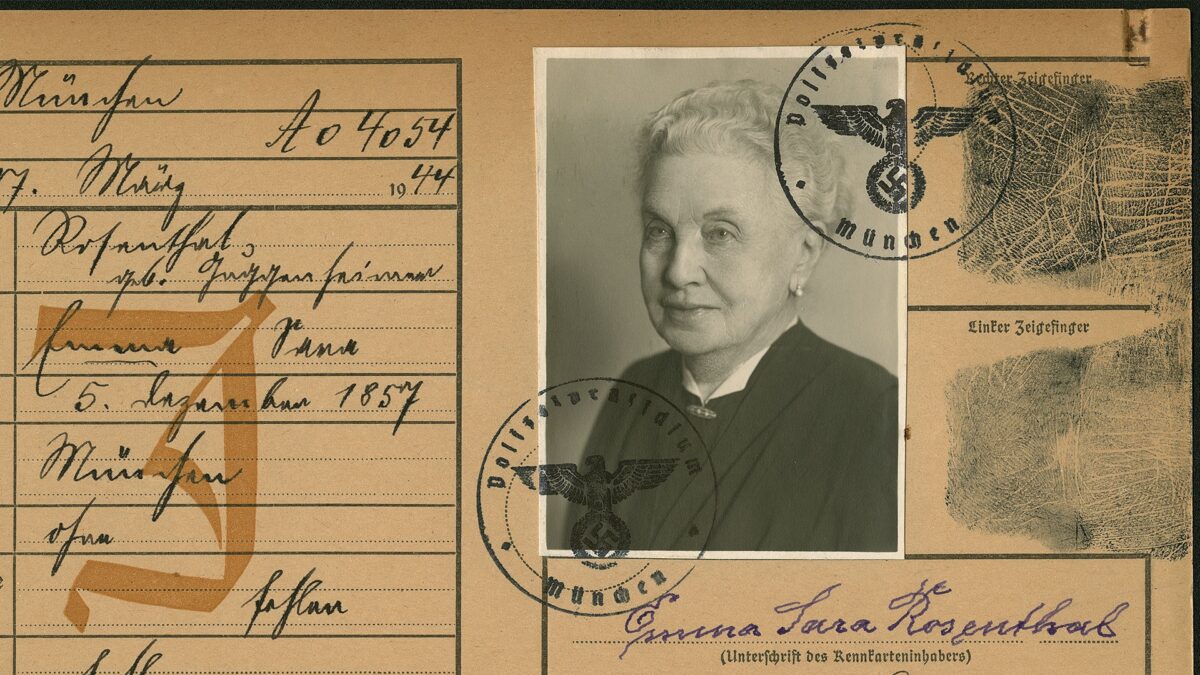 München
A 04054
7. März 1944
Rosenthal,
geb. Guggenheimer
Emma Sara
5. Dezember 1857
München
ohne
fehlen
J
Polizeipräsidium
München
Polizeipräsidium
München
Rechter Zeigefinger
Linker Zeigefinger
Emma Sara Rosenthal
(Unterschrift des Kennkarteninhabers)